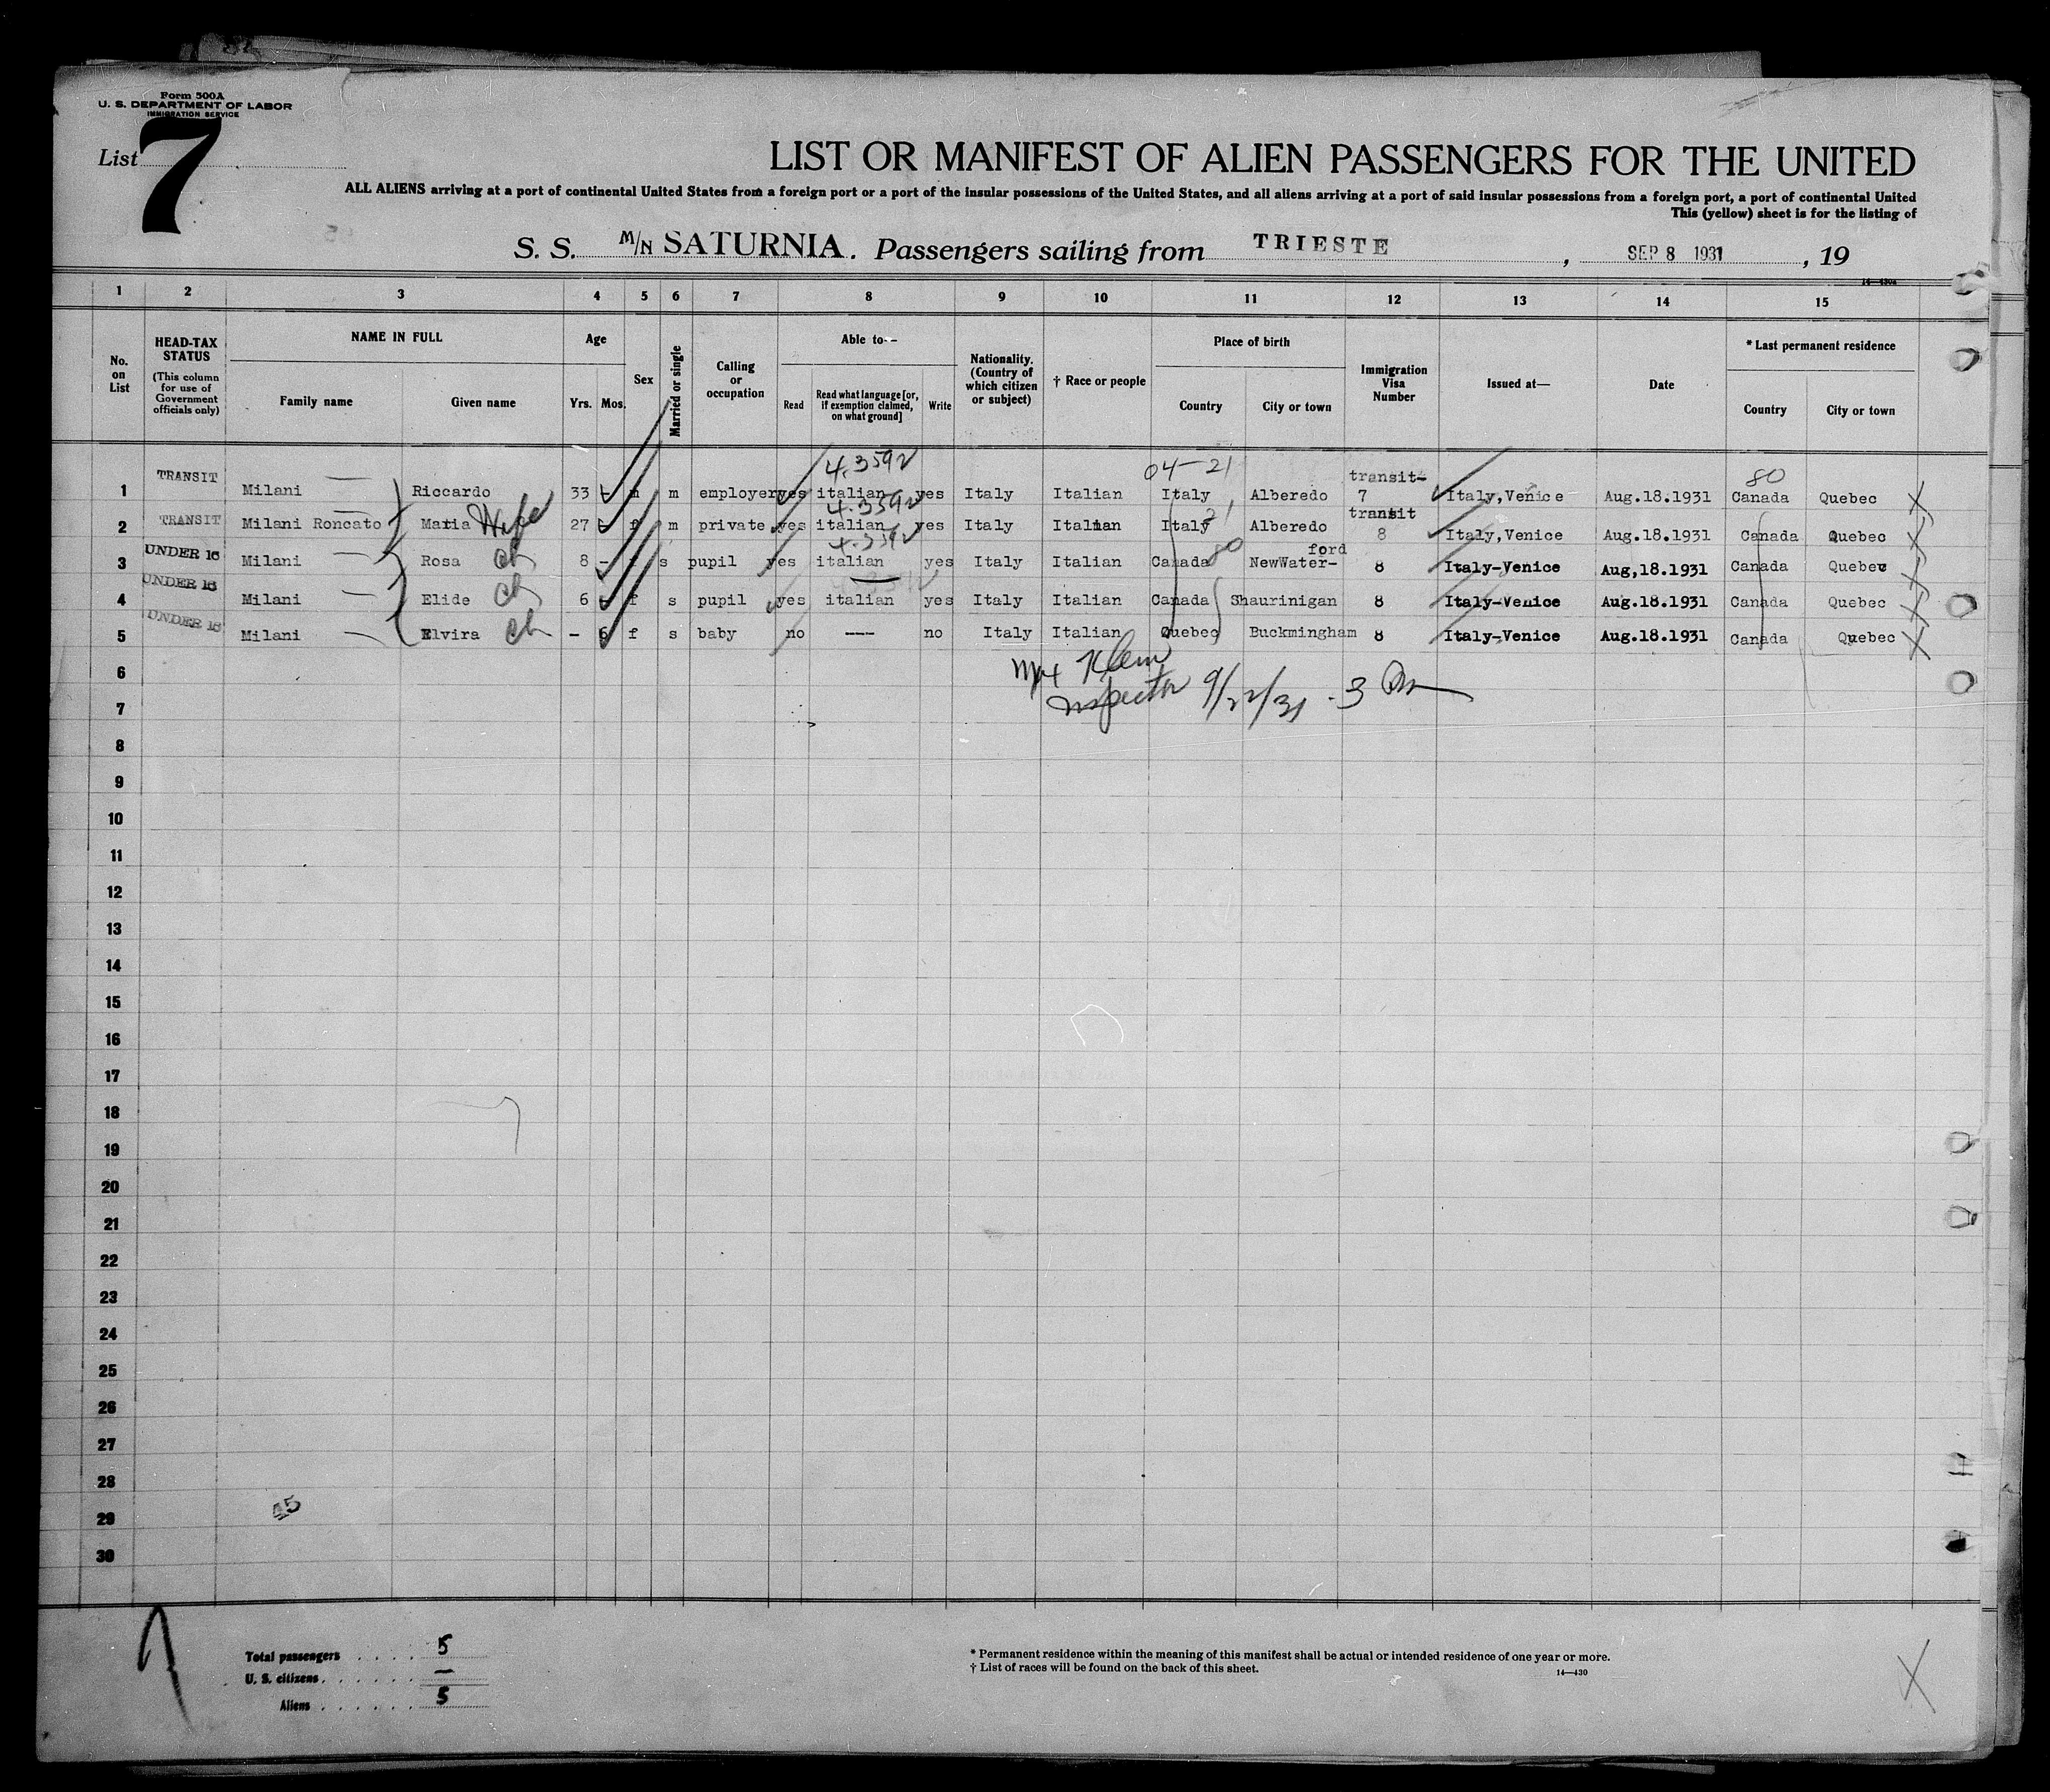 Form 500A
U. S. DEPARTMENT OF LABOR
IMMIGRATION SERVICE
List 7
LIST OR MANIFEST OF ALIEN PASSENGERS FOR THE UNITED
ALL ALIENS arriving at a port of continental United States from a foreign port or a port of the insular possessions of the United States, and all aliens arriving at a port of said insular possessions from a foreign port, a port of continental United
This (yellow) sheet is for the listing of
S. S. M/N SATURNIA. Passengers sailing from TRIESTE, SEP 8 1931, 19
14—430A
1 2 3 4 5 6 7 8 9 10 11 12 13 14 15
No. on List
HEAD-TAX STATUS (This column for use of Government officials only)
NAME IN FULL
Family name Given name
Age
Yrs. Mos.
Sex
Married or single
Calling or occupation
Able to—
Read Read what language [or, if exemption claimed, on what ground] Write
Nationality. (Country of which citizen or subject)
† Race or people
Place of birth
Country City or town
Immigration Visa Number
Issued at—
Date
* Last permanent residence
Country City or town
4.3592 04-21 80
1 TRANSIT Milani Riccardo 33 m m employer yes italian yes Italy Italian Italy Alberedo transit- 7 Italy,Venice Aug.18.1931 Canada Quebec X
4.3592 21
2 TRANSIT Milani Roncato Maria Wife 27 f m private yes italian yes Italy Italian Italy Alberedo transit 8 Italy,Venice Aug.18.1931 Canada Quebec X
4.3592 80
3 UNDER 16 Milani Rosa ch 8 - f s pupil yes italian yes Italy Italian Canada NewWater-ford 8 Italy-Venice Aug,18.1931 Canada Quebec X
4 UNDER 16 Milani Elide ch 6 f s pupil yes italian yes Italy Italian Canada Shaurinigan 8 Italy-Venice Aug.18.1931 Canada Quebec X
5 UNDER 16 Milani Elvira ch - 6 f s baby no --- no Italy Italian Quebec Buckmingham 8 Italy-Venice Aug.18.1931 Canada Quebec X
6 Klein
7 Inspector 9/22/31 - 3 Pm
8
9
10
11
12
13
14
15
16
17
18
19
20
21
22
23
24
25
26
27
28
29
30
Total passengers . . . . 5
U. S. citizens . . . . . . —
Aliens . . . . . . 5
* Permanent residence within the meaning of this manifest shall be actual or intended residence of one year or more.
† List of races will be found on the back of this sheet.
14—430
X